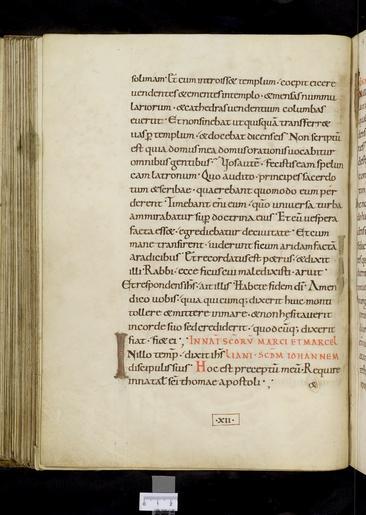 solimam. Et cum introisset templum. coepit eicere
uendentes & ementes in templo. & mensas nummu
lariorum. & cathedras uendentium columbas
euertit. Et non sinebat ut quisquā transferr&
uas p templum. & docebat dicens eis. Non scriptū
est quia domus mea domus orationis uocabitur
omnibus gentibus. Vos autē. fecistis eam spelun
cam latronum. Quo audito. principes sacerdo
tum & scribae. quaerebant quomodo eum per
derent. Timebant eni eum. quō uniuersa turba
ammirabatur sup doctrina eius. Et cū uespera
facta ess&. egrediebatur de ciuitate. Et cum
mane transirent. uiderunt ficum aridam factā
a radicibus. Et recordatus est petrus. & dixit
illi. Rabbi. ecce ficus cui maledixisti. aruit.
Et respondens ihs. ait illis. Habete fidem dī. Amen
dico uobis. quia quicumq; dixerit huic monti
tollere & mittere in mare. & non hesitauerit
in corde suo sed crediderit. quodcūq; dixerit
fiat. fi& ei. IN NAT SCORV MARCI ET MARCEL
In illo tempr. dixit ihs LIANI. SCDM IOHANNEM
discipulis suis. Hoc est preceptū meū. Require
in natal sci thomae apostoli.
·XII·